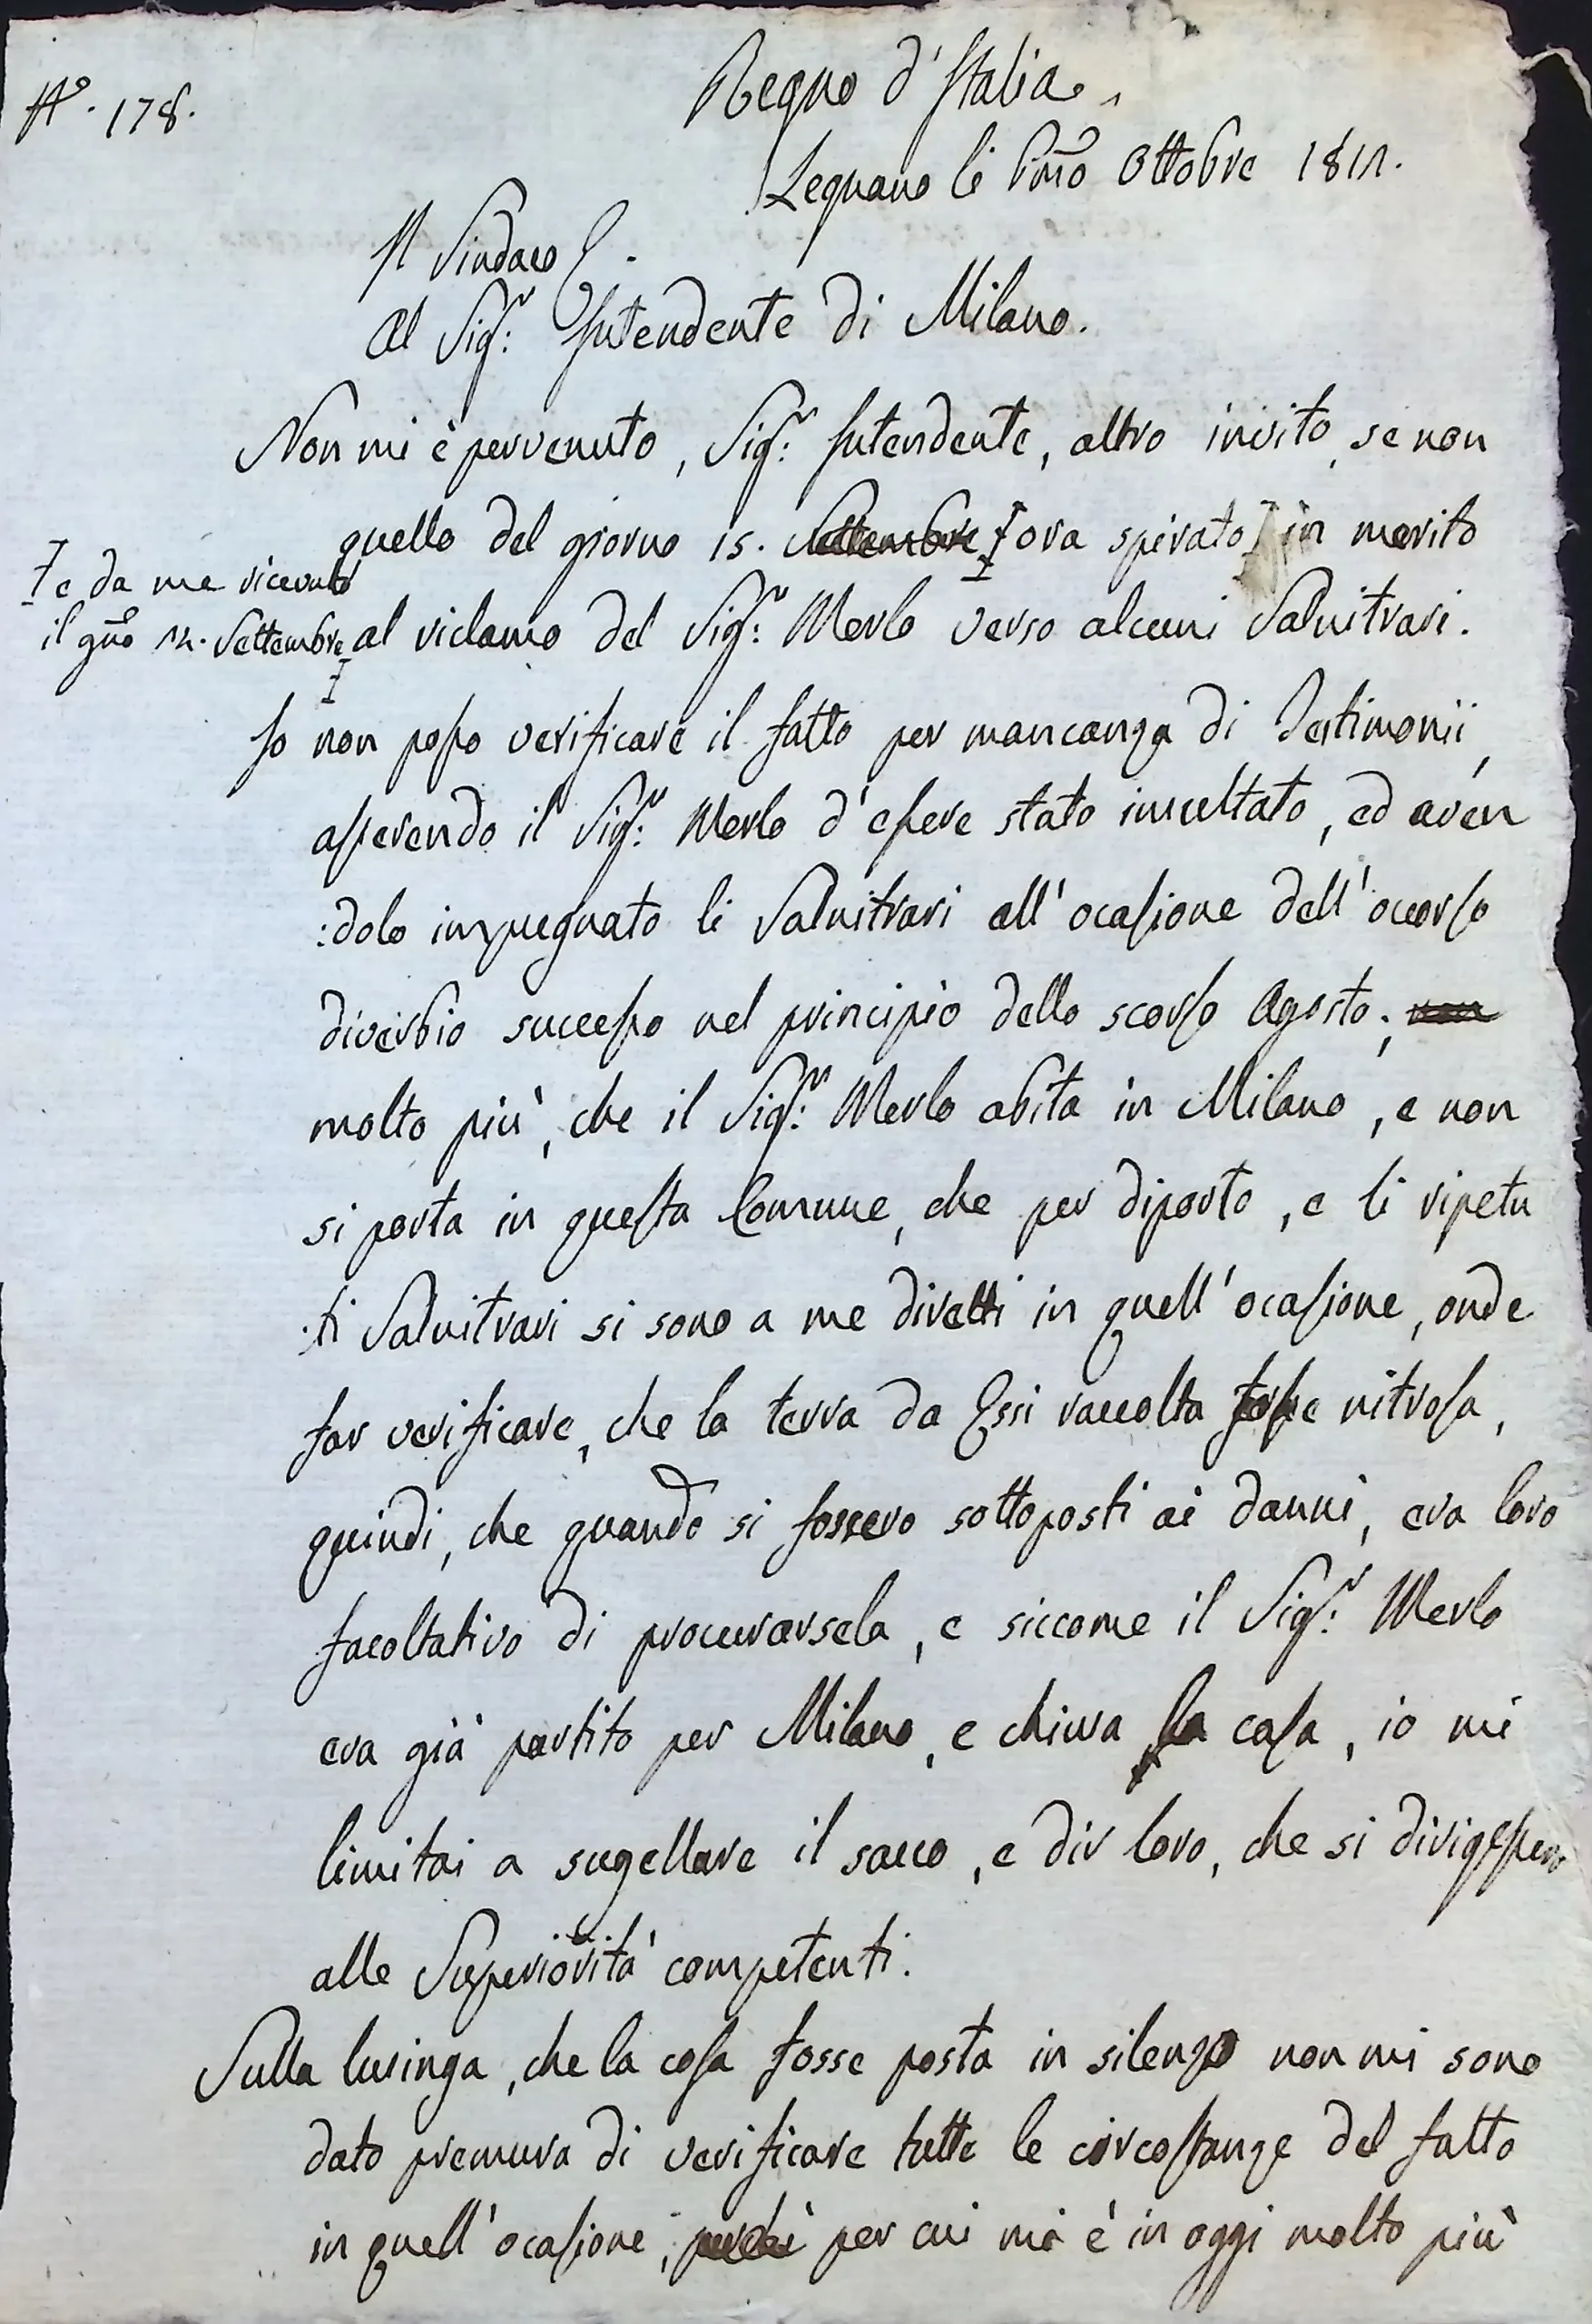 N.º 178.
Regno d'Italia.
Legnano li Pmo Ottobre 1812.
Il Sindaco
Al Sig.r Intendente di Milano.
Non mi è pervenuto, Sig.r Intendente, altro invito, se non
quello del giorno 15. Settembre ora spirato in merito
e da me ricevuto
il gno 12. Settembre
al riclamo del Sig.r Merlo verso alcuni Salnitrari.
Io non posso verificare il fatto per mancanza di Testimonii,
asserendo il Sig.r Merlo d'essere stato insultato, ed aven
:dolo impugnato li Salnitrari all'ocasione dell'occorso
diverbio successo nel principio dello scorso Agosto; non
molto più, che il Sig.r Merlo abita in Milano, e non
si porta in questa Comune, che per diporto, e li ripetu
:ti Salnitrari si sono a me diretti in quell'ocasione, onde
far verificare, che la terra da Essi raccolta fosse nitrosa,
quindi, che quando si fossero sottoposti ai danni, era loro
facoltativo di procurarsela, e siccome il Sig.r Merlo
era già partito per Milano, e chiusa la casa, io mi
limitai a sugellare il sacco, e dir loro, che si dirigessero
alle Superiorità competenti.
Sulla lusinga, che la cosa fosse posta in silenzo non mi sono
dato premura di verificare tutte le circostanze del fatto
in quell'ocasione, perchè per cui mi è in oggi molto più